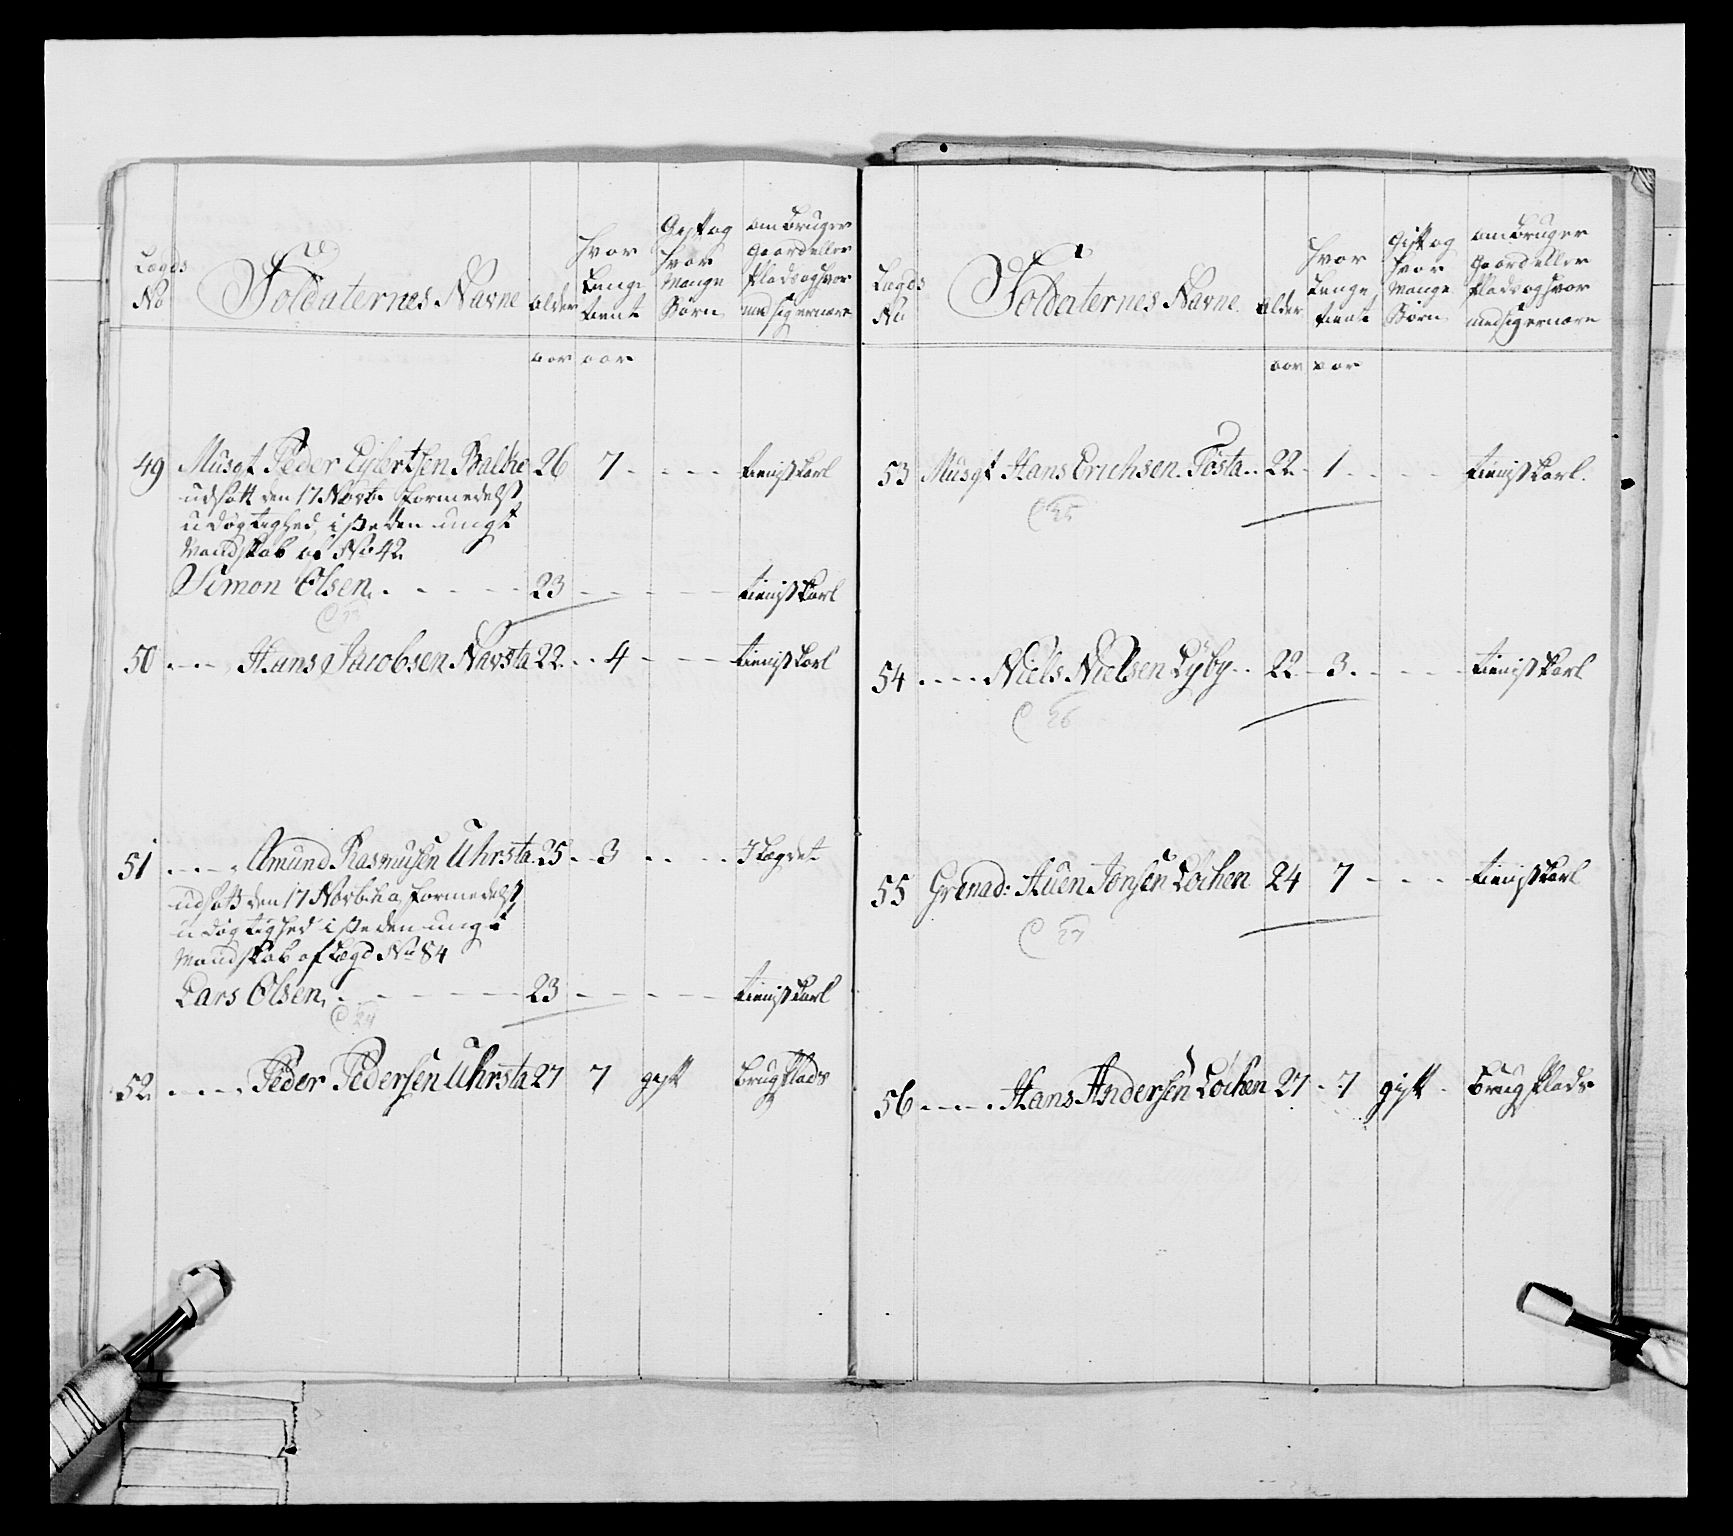 Lægds No
Soldaternes Navne
alder
hvor Lenge tient
Gift og hvor Mange Børn
om Bruger Gaard eller Plads og hvor med sig ernære
aar aar
49 Musqt Peder Ejlertsen Balke 26 7 - - - - tienistkarl
udsatt den 17 Novbr. formedelst
udøgtighed i steden ungt
Mandskab af No 42
Simon Olsen. - - - - - 23 - - - - - - tienistkarl
50 - - - Hans Jacobsen Navsta 22 - - 4 - - - tienistkarl
51 - - - Amund Rasmusen Uhrsta 25 - 3 - - - - I Lægdet
udsatt den 17 Novb: formedelst
udøgtighed i steden ungt
Mandskab af Lægd No 84
Lars Olsen, - - - - - - 23 - - - - - - tienistkarl
C 24
52 - - - - Peder Pedersen Uhrsta 27 7 gift Brugplads
Lægds No
Soldaternes Navne.
alder
hvor Lenge tient
Gift og hvor Mange Børn
om Bruger Gaard eller Plads og hvor med sig ernære
aar aar
53 Musqt Hans Erichsen Tosta - - 22 - 1 - - - - tienistkarl.
C 25
54 - - - - Niels Nielsen Lyby - - 22 - 3 - - - - tienistkarl
C 26
55 Grenad: Auen Jonsen Lochen 24 7 - - - - tienistkarl
C 27
56 - - - - Hans Andersen Lochen 27 - 7 gift - Brugplads